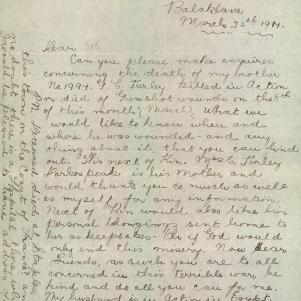 Balaklava
March 25th 1917.
Dear Sir
Can you please make enquires
concerning the death of my brother
No 1997. F. E. Turley killed in Action
or died of Gunshot wounds on the 8th
of this month, March: What we
would like to know when and
where he was wounded - and any
thing about it, that you can find
out. His next of Kin, Mrs E. Turley
is his Mother and
would thank you so much as well
as myself for any information.
Next of Kin would also like his
personal belongings sent home to
her as keepsakes. Oh if God would
only end this misery. Now dear
friends, as such you are to all
concerned in this terrible war, be
kind and do all you can for me.
My husband is in Action in Egypt
P.N. Deceased died at Etaples
this town on the Coast of France and